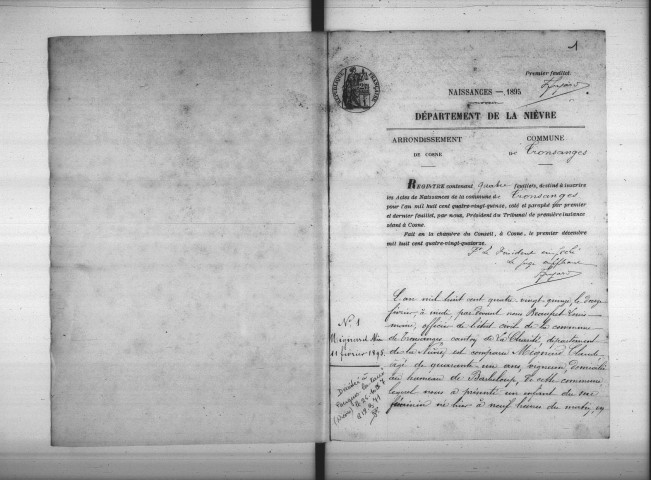 1
Premier feuillet.
NAISSANCES — 1895
RÉPUBLIQUE FRANÇAISE
DÉPARTEMENT DE LA NIÈVRE
ARRONDISSEMENT
DE COSNE
COMMUNE
DE Tronsanges
REGISTRE contenant quatre feuillets, destiné à inscrire
les Actes de Naissances de la commune de Tronsanges
pour l'an mil huit cent quatre-vingt-quinze, coté et paraphé par premier
et dernier feuillet, par nous, Président du Tribunal de première instance
séant à Cosne.
Fait en la chambre du Conseil, à Cosne, le premier décembre
mil huit cent quatre-vingt-quatorze.
Pr Le Président empêché
Le Juge
N° 1
Mignard
11 février 1895
L'an mil huit cent quatre vingt quinze, le douze
février, à midi, par devant nous Louis
officier de l'état civil de la commune
de Tronsanges canton de La Charité, département
de la Nièvre est comparu Mignard Claude
âgé de quarante un ans, vigneron, domicilié
au hameau de Barbeloup, de cette commune
lequel nous a présenté un enfant du sexe
féminin né hier à neuf heures du matin, en
Décédée à